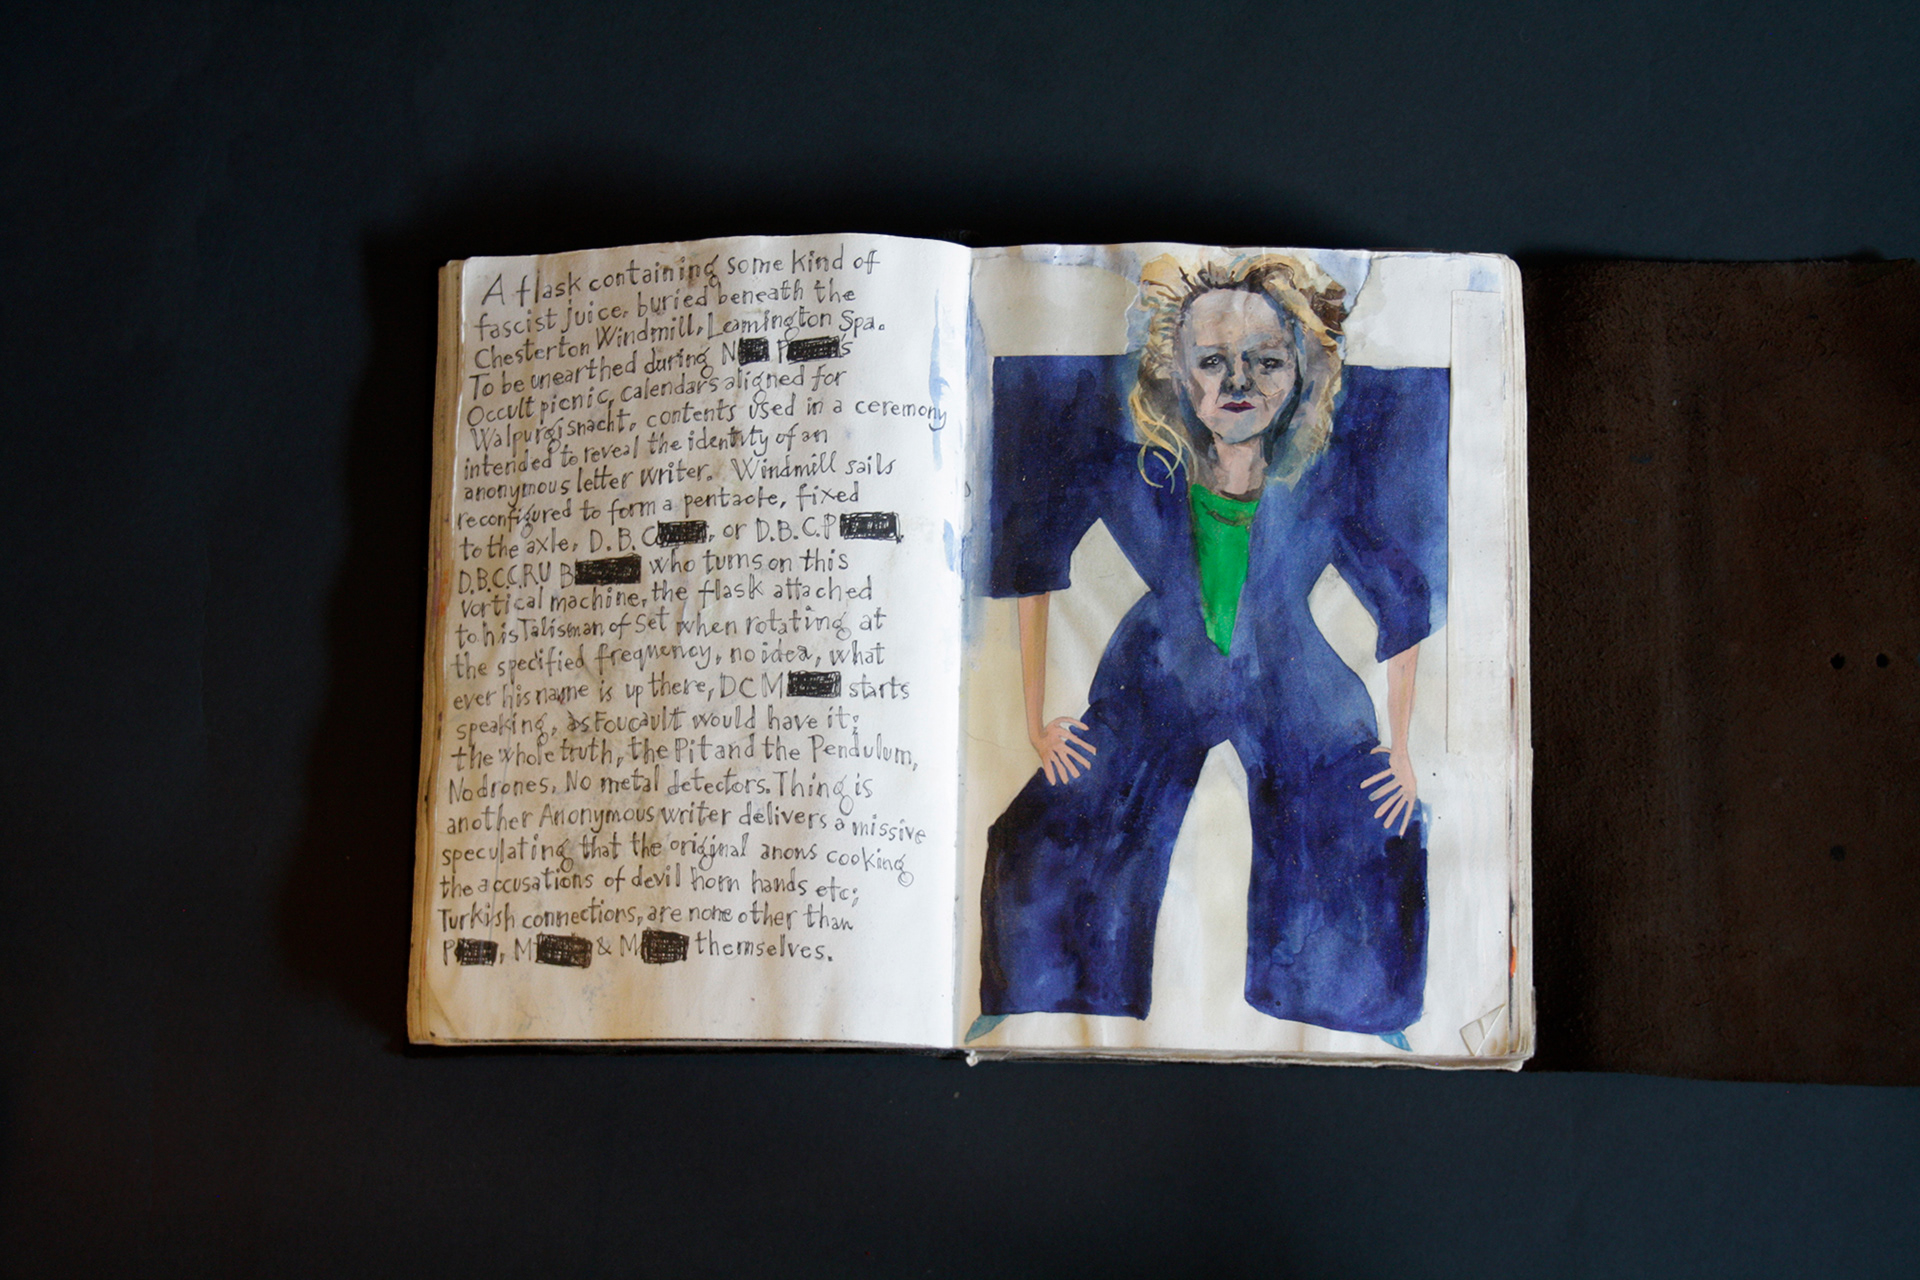 A flask containing some kind of
fascist juice, buried beneath the
Chesterton Windmill, Leamington Spa.
To be unearthed during N P's
Occult picnic, calendars aligned for
Walpurgisnacht, contents used in a ceremony
intended to reveal the identity of an
anonymous letter writer. Windmill sails
reconfigured to form a pentacle, fixed
to the axle, D.B.C, or D.B.C.P,
D.B.C.C.RU B who turns on this
vortical machine, the flask attached
to his Talisman of Set when rotating at
the specified frequency, no idea, what
ever his name is up there, DC M starts
speaking, as Foucault would have it;
the whole truth, the Pit and the Pendulum,
No drones, No metal detectors. Thing is
another Anonymous writer delivers a missive
speculating that the original anons cooking
the accusations of devil horn hands etc;
Turkish connections, are none other than
P, M & M themselves.